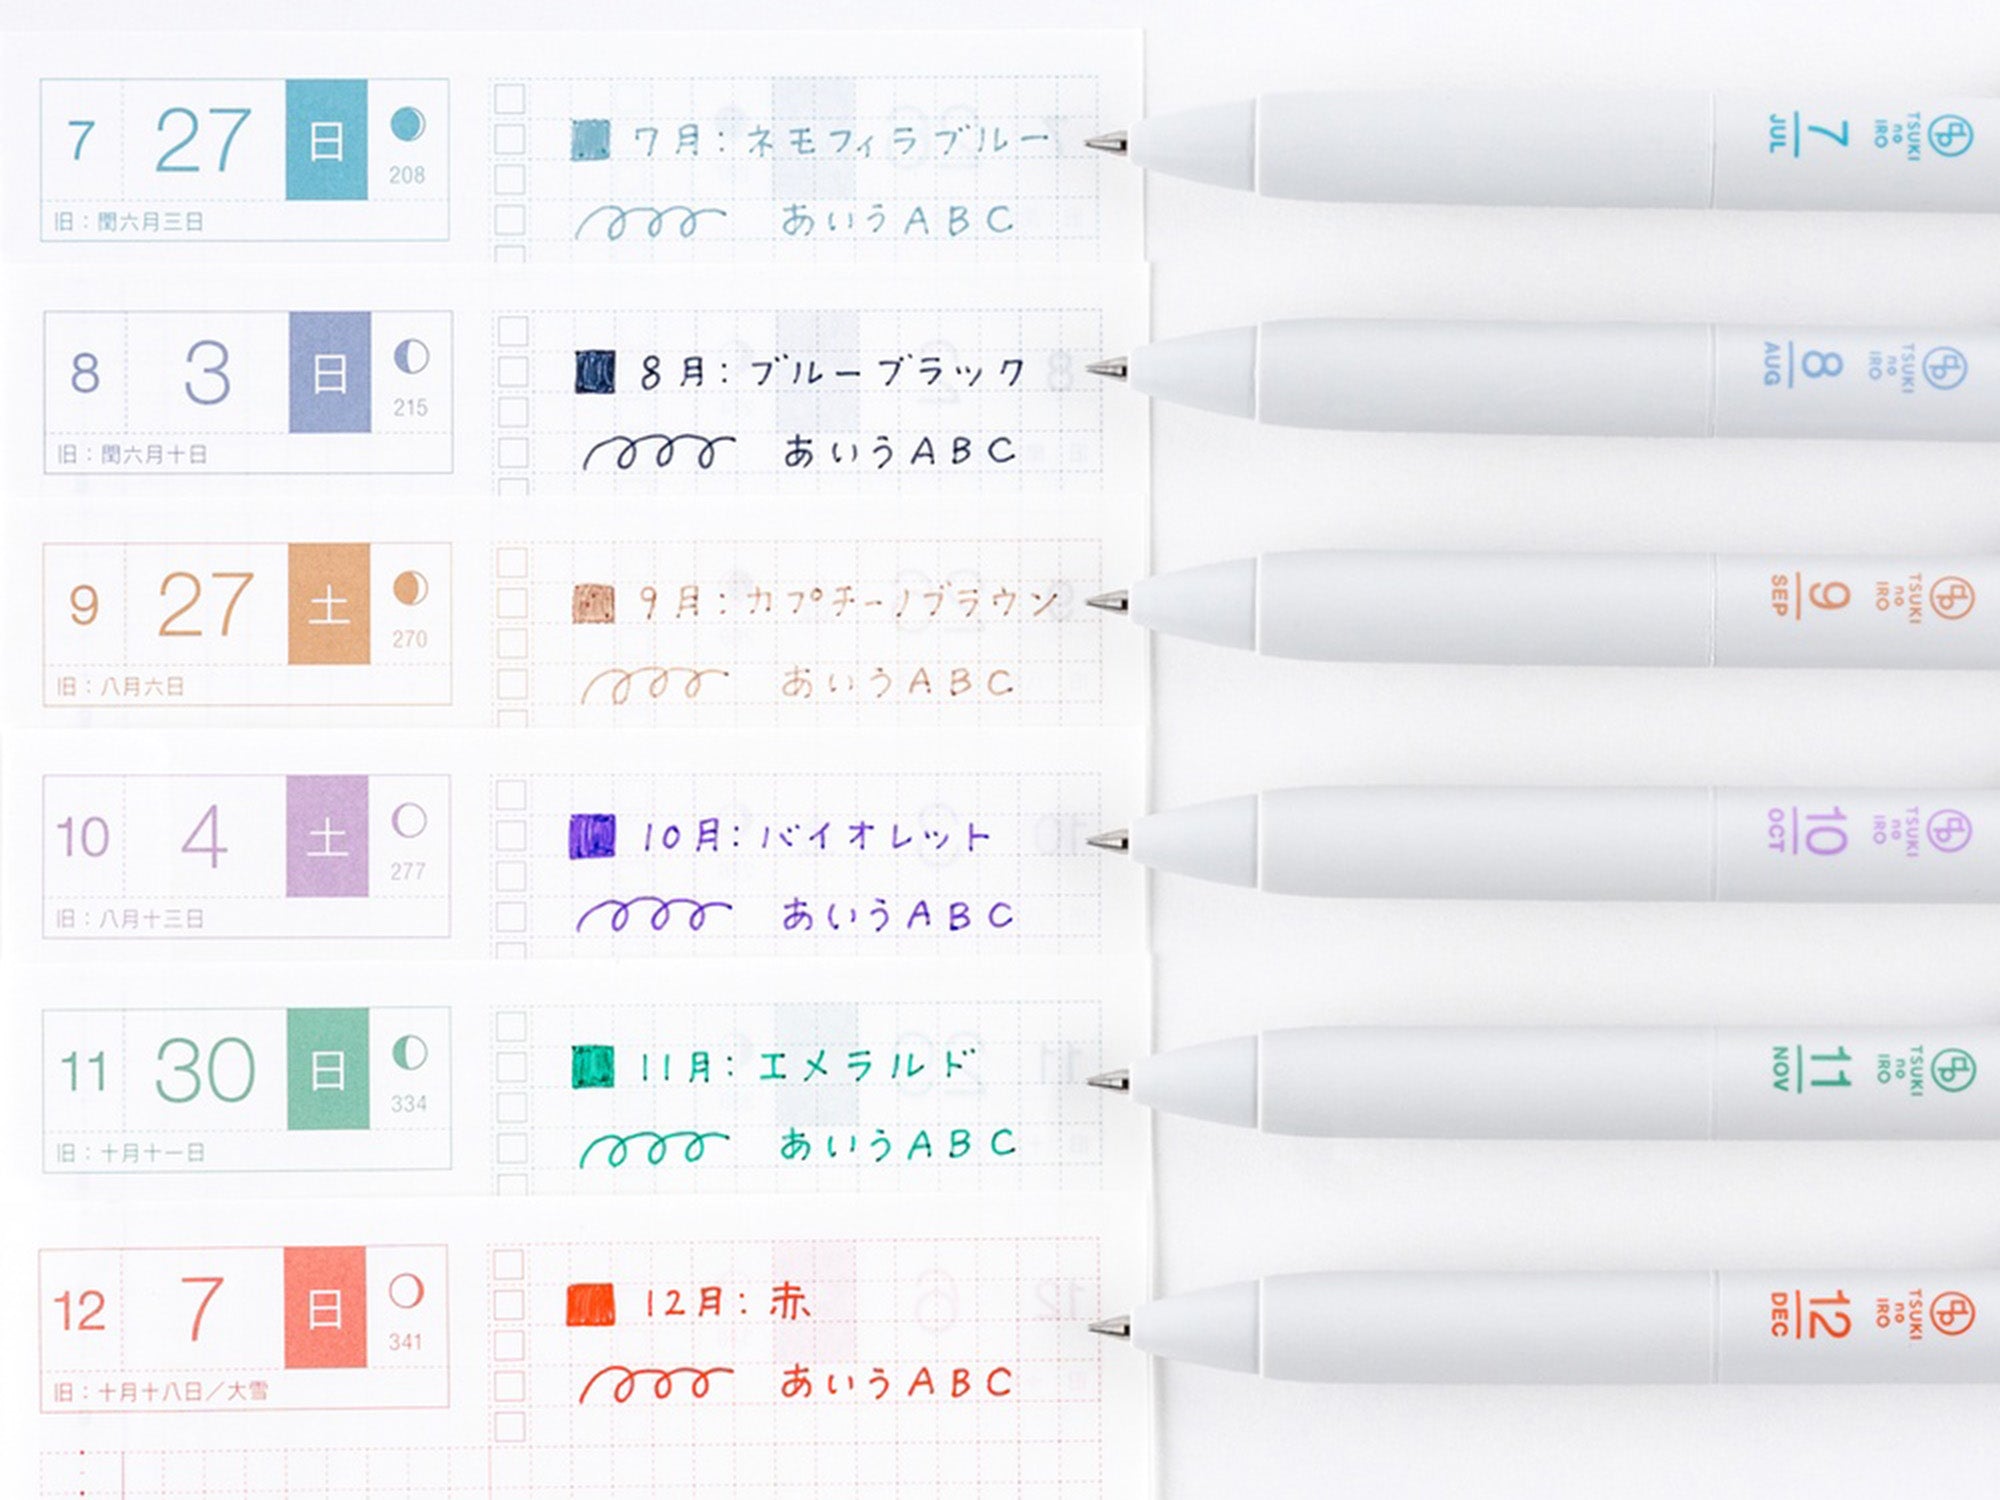 7 27 日 208
旧：閏六月三日
7月：ネモフィラブルー
あいうABC
7 JUL TSUKI no IRO
8 3 日 215
旧：閏六月十日
8月：ブルーブラック
あいうABC
8 AUG TSUKI no IRO
9 27 土 270
旧：八月六日
9月：カプチーノブラウン
あいうABC
9 SEP TSUKI no IRO
10 4 土 277
旧：八月十三日
10月：バイオレット
あいうABC
10 OCT TSUKI no IRO
11 30 日 334
旧：十月十一日
11月：エメラルド
あいうABC
11 NOV TSUKI no IRO
12 7 日 341
旧：十月十八日／大雪
12月：赤
あいうABC
12 DEC TSUKI no IRO